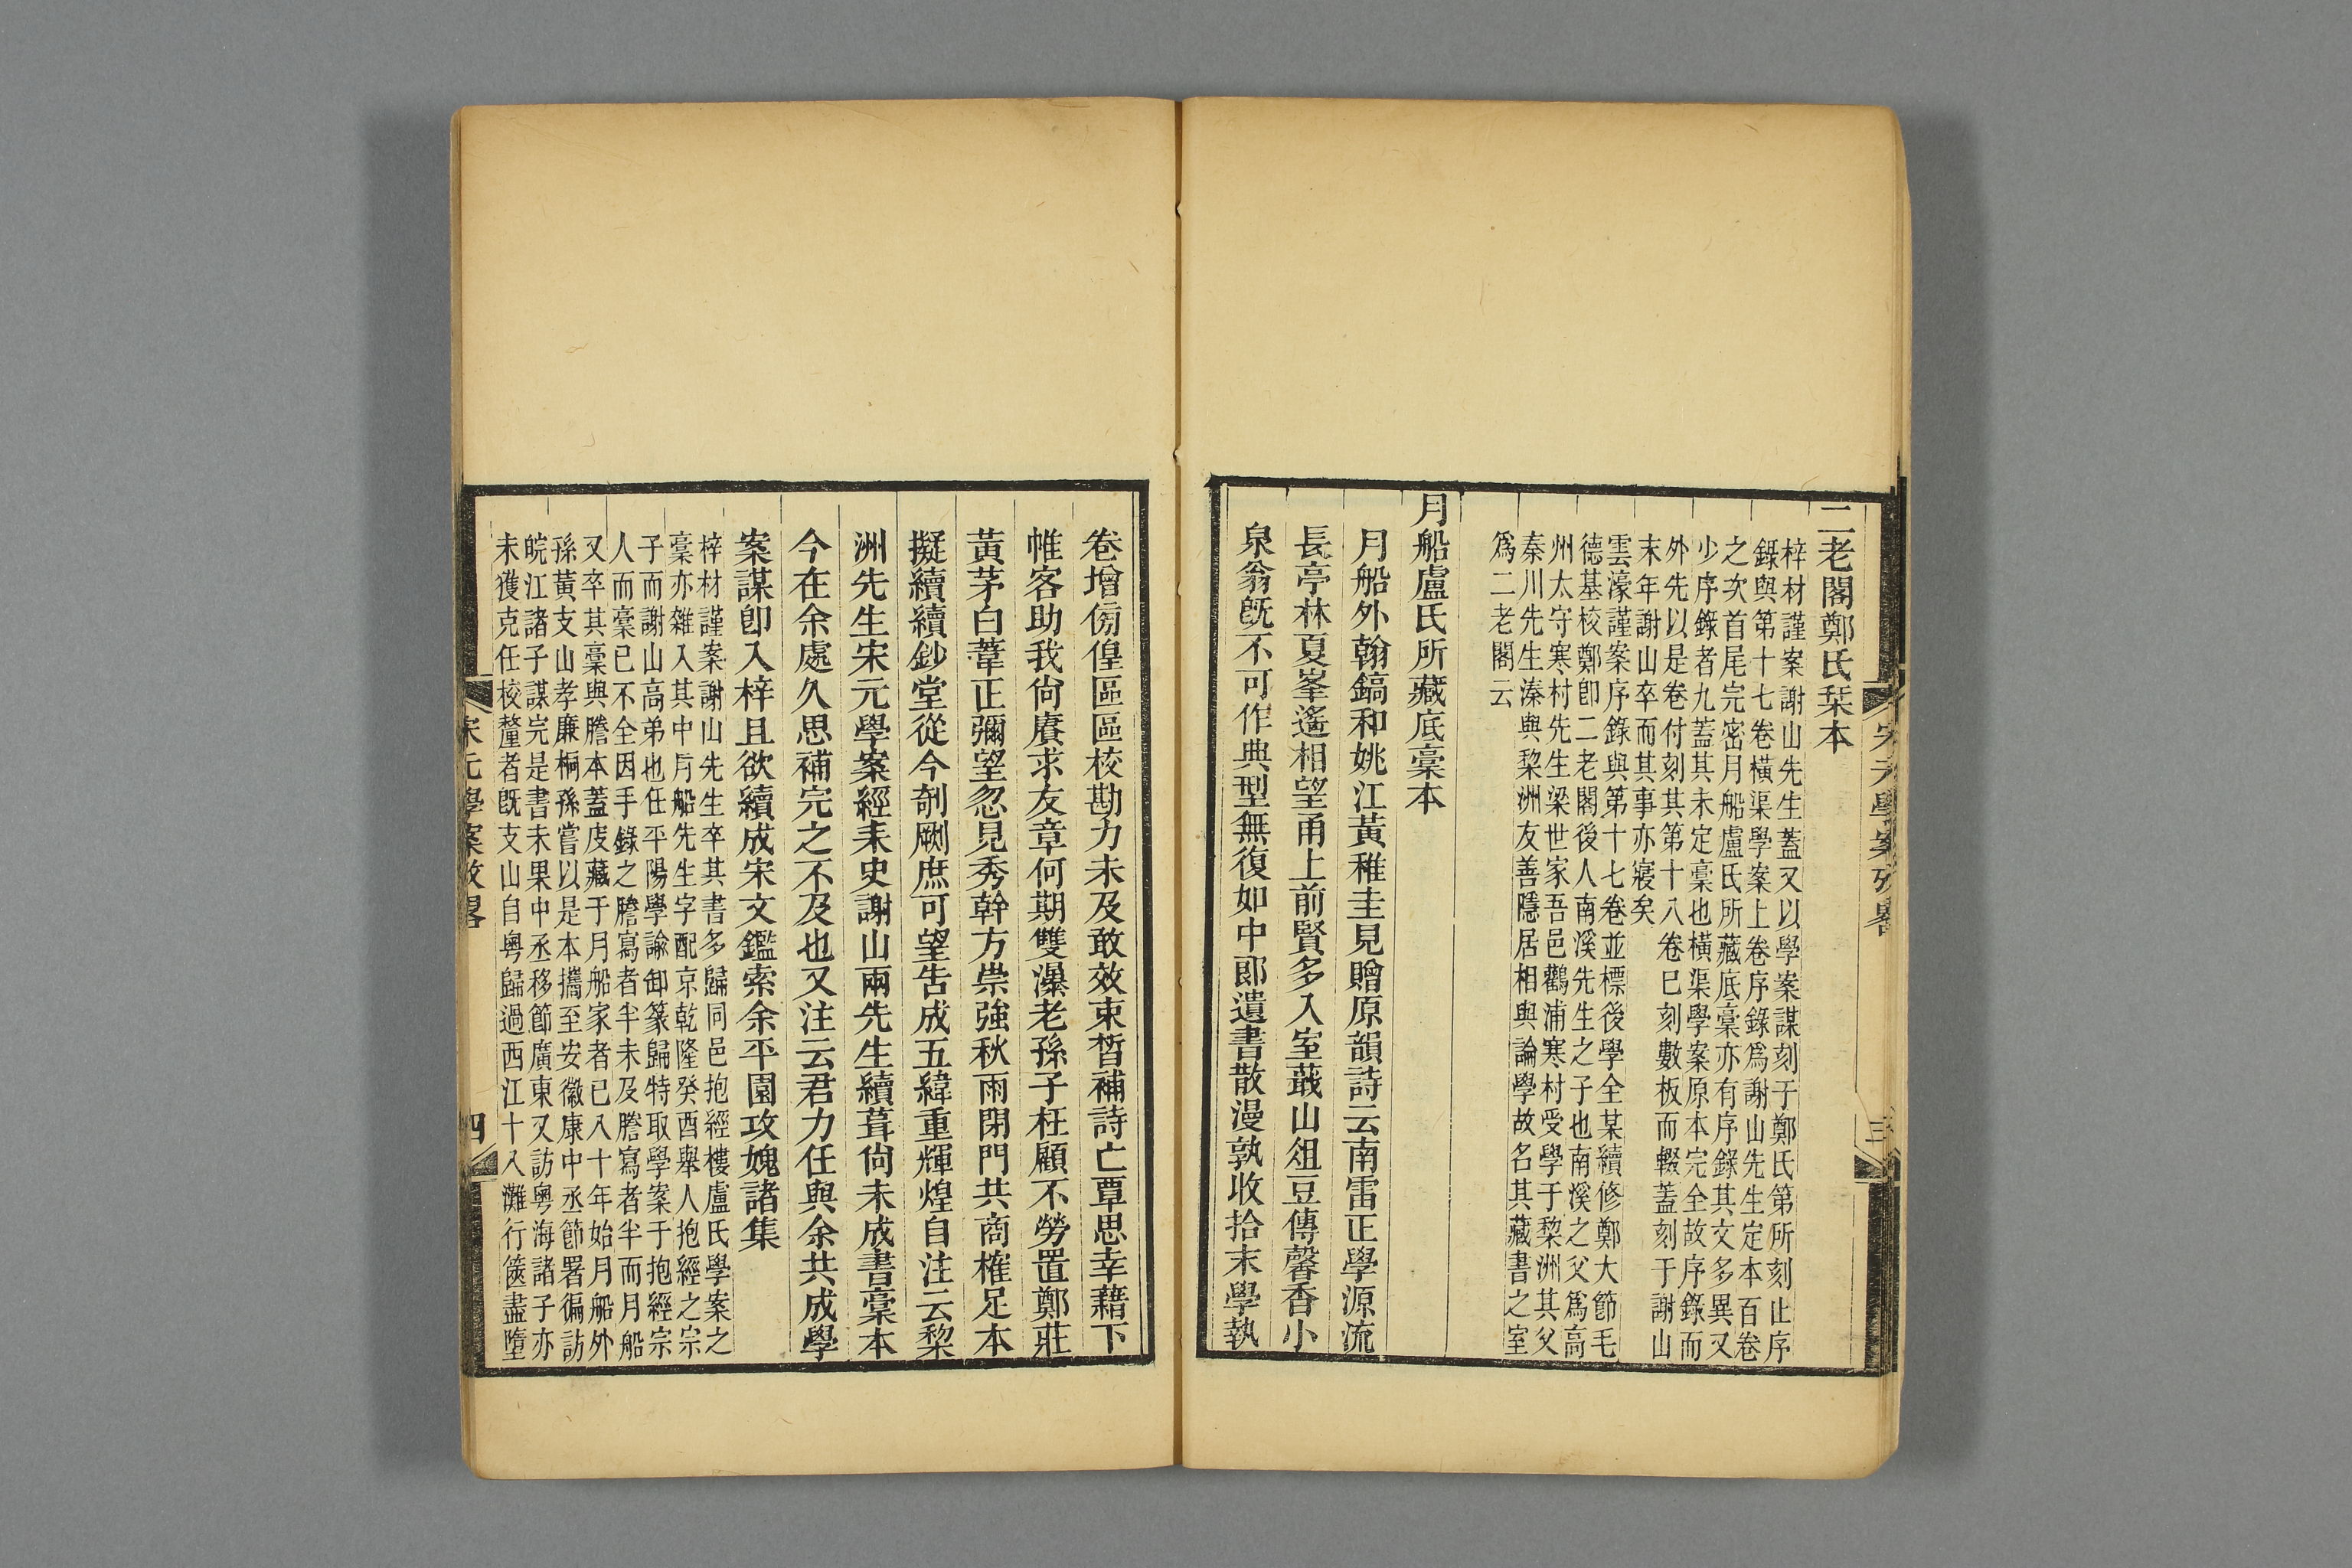 二老閣鄭氏栞本
梓材謹案謝山先生蓋又以學案謀刻于鄭氏第所刻止序
錄與第十七卷橫渠學案上卷序錄爲謝山先生定本百卷
之次首尾完密月船盧氏所藏底稾亦有序錄其文多異又
少序錄者九蓋其未定稾也橫渠學案原本完全故序錄而
外先以是卷付刻其第十八卷巳刻數板而輟蓋刻于謝山
末年謝山卒而其事亦寢矣
雲濠謹案序錄與第十七卷並標後學全某續修鄭大節毛
德基校鄭卽二老閣後人南溪先生之子也南溪之父爲高
州太守寒村先生梁世家吾邑鸛浦寒村受學于黎洲其父
秦川先生溱與黎洲友善隱居相與論學故名其藏書之室
爲二老閣云
月船盧氏所藏底稾本
月船外翰鎬和姚江黃稚圭見贈原韻詩云南雷正學源流
長亭林夏峯遙相望甬上前賢多入室蕺山俎豆傳馨香小
泉翁旣不可作典型無復如中郞遺書散漫孰收拾末學執
宋元學案攷畧
三
卷增徬偟區區校勘力未及敢效束晳補詩亡覃思幸藉下
帷客助我尙賡求友章何期雙瀑老孫子枉顧不勞置鄭莊
黃茅白葦正彌望忽見秀幹方崇強秋雨閉門共商榷足本
擬續續鈔堂從今剞劂庶可望告成五緯重輝煌自注云黎
洲先生宋元學案經耒史謝山兩先生續葺尙未成書稾本
今在余處久思補完之不及也又注云君力任與余共成學
案謀卽入梓且欲續成宋文鑑索余平園攻媿諸集
梓材謹案謝山先生卒其書多歸同邑抱經樓盧氏學案之
稾亦雜入其中月船先生字配京乾隆癸酉舉人抱經之宗
子而謝山高弟也任平陽學諭卸篆歸特取學案于抱經宗
人而稾已不全因手錄之謄寫者半未及謄寫者半而月船
又卒其稾與謄本蓋庋藏于月船家者已八十年始月船外
孫黃支山孝廉桐孫嘗以是本攜至安徽康中丞節署徧訪
皖江諸子謀完是書未果中丞移節廣東又訪粵海諸子亦
未獲克任校釐者旣支山自粵歸過西江十八灘行篋盡墮
宋元學案攷畧
四